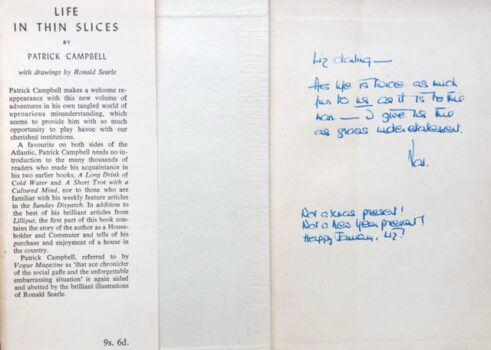 LIFE
IN THIN SLICES
BY
PATRICK CAMPBELL
with drawings by Ronald Searle
Patrick Campbell makes a welcome re-
appearance with this new volume of
adventures in his own tangled world of
uproarious misunderstanding, which
seems to provide him with so much
opportunity to play havoc with our
cherished institutions.
A favourite on both sides of the
Atlantic, Patrick Campbell needs no in-
troduction to the many thousands of
readers who made his acquaintance in
his two earlier books, A Long Drink of
Cold Water and A Short Trot with a
Cultured Mind, nor to those who are
familiar with his weekly feature articles
in the Sunday Dispatch. In addition to
the best of his brilliant articles from
Lilliput, the first part of this book con-
tains the story of the author as a House-
holder and Commuter and tells of his
purchase and enjoyment of a house in
the country.
Patrick Campbell, referred to by
Vogue Magazine as 'that ace chronicler
of the social gaffe and the unforgettable
embarrassing situation' is again aided
and abetted by the brilliant illustrations
of Ronald Searle.
9s. 6d.
Liz darling —
His life is twice as much
fun to us as it is to the
man — I give his title
as gross understatement.
Not a Xmas present!
Not a New Year present!
Happy January, Liz!